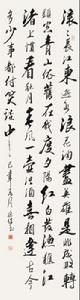 滚滚長江東逝水浪花淘盡英雄是非成敗轉
頭空青山依舊在幾度夕陽紅白髮漁樵江
渚上慣看秋月春風一壺濁酒喜相逢古今
多少事都付笑談中